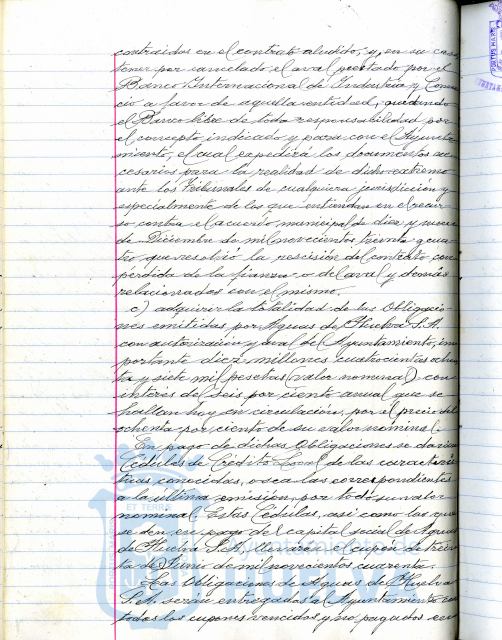 contraidos en el contrato aludido, y, en su caso
tener por cancelado el aval prestado por el
Banco Internacional de Industria y Comer
cio a favor de aquella entidad, quedando
el Banco libre de toda responsabilidad por
el concepto indicado y para con el Ayunta
miento, el cual expedirá los documentos ne
cesarios para la realidad de dicho extremo
ante los Tribunales de cualquiera jurisdicción y
especialmente de los que entiendan en el recur
so contra el acuerdo municipal de diez y nueve
de Diciembre de mil novecientos treinta y cua
tro que resolvió la rescisión del contrato con
pérdida de la fianza o del aval y demás
relacionados con el mismo.
c) adquirir la totalidad de las Obligacio-
nes emitidas por Aguas de Huelva S.A.
con autorización y aval del Ayuntamiento, im
portante diez millones cuatrocientas
ta y siete mil pesetas (valor nominal) con
interés de seis por ciento anual que se
hallan hoy en circulación, por el precio del
ochenta por ciento de su valor nominal.
En pago de dichas Obligaciones se darán
Cédulas de Crédito Local de las caracterís
ticas conocidas, o sea las correspondientes
a la última emisión, por todo su valor
nominal. Estas Cédulas, así como las que
se den en pago del capital social de Aguas
de Huelva S.A. llevarán el cupón de trein
ta de Junio de mil novecientos cuarenta.
Las Obligaciones de Aguas de Huelva
S.A. serán entregadas al Ayuntamiento con
todos los cupones vencidos y no pagados en
ET TERRIS
Ayuntamiento de
HUELVA